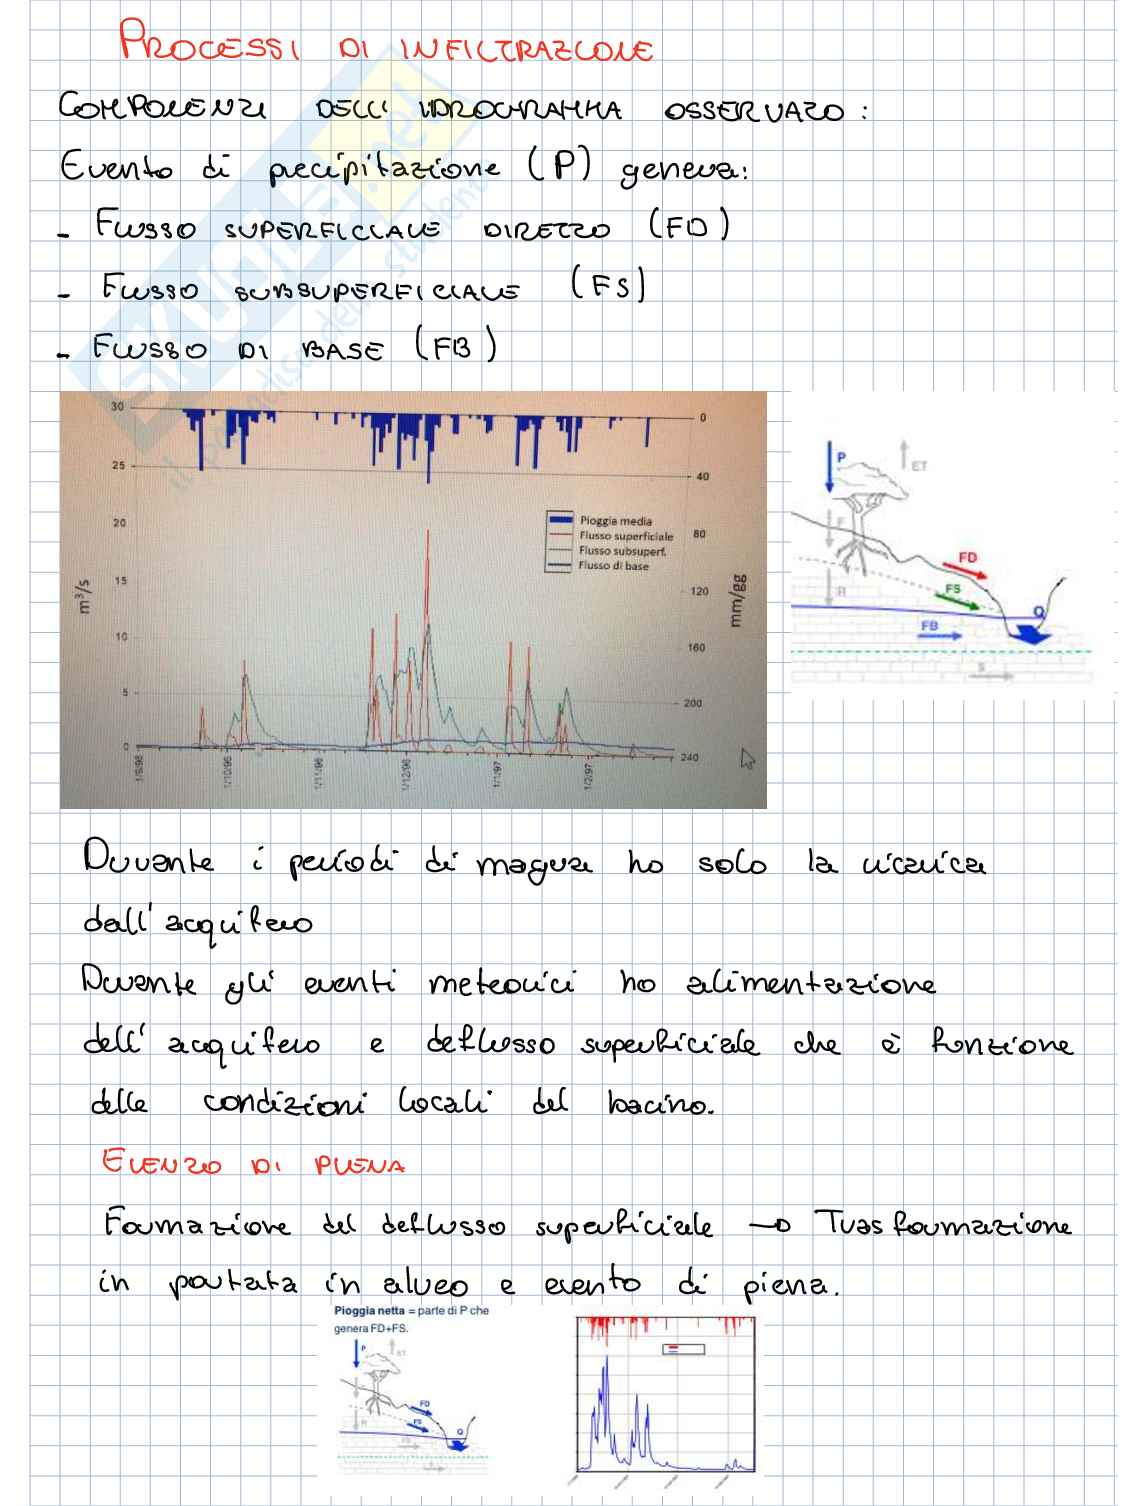 PROCESSI DI INFILTRAZIONE
COMPONENTI DELL'IDROGRAMMA OSSERVATO:
Evento di precipitazione (P) genera:
- FLUSSO SUPERFICIALE DIRETTO (FD)
- FLUSSO SUBSUPERFICIALE (FS)
- FLUSSO DI BASE (FB)
SKUOLA.net
il paradiso dello studente
30
25
20
15
10
5
0
m³/s
0
40
80
120
160
200
240
mm/gg
Pioggia media
Flusso superficiale
Flusso subsuperf.
Flusso di base
1/9/96
1/10/96
1/11/96
1/12/96
1/1/97
1/2/97
P
ET
F
R
FD
FS
FB
Q
S
Durante i periodi di magra ho solo la ricarica
dall'acquifero
Durante gli eventi meteorici ho alimentazione
dell'acquifero e deflusso superficiale che è funzione
delle condizioni locali del bacino.
EVENTO DI PIENA
Formazione del deflusso superficiale → Trasformazione
in portata in alveo e evento di piena.
Pioggia netta = parte di P che
genera FD+FS.
P
ET
R
FD
FS
FB
Q